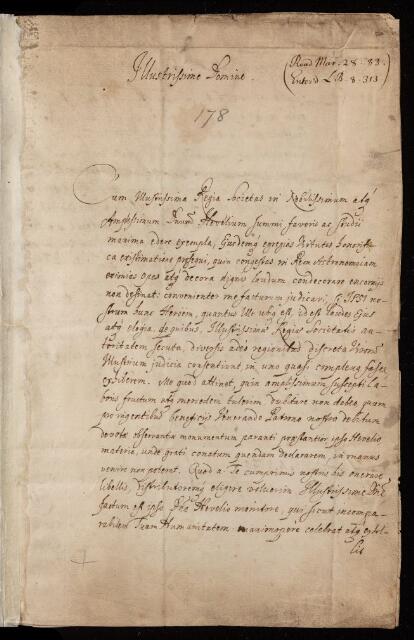 Illustrissime Domine.
(Read Mar. 28. 83.
Enterd L.B. 8. 313)
178
Cum Illustrissima Regia Societas in Nobilissimum atq́
Amplissimum Dnum Hevelium summi favoris ac studii
maxima edere exempla, Ejusdemq́ egregias Virtutes honorifi-
ca existimatione prosequi, quin congestas in Rem Astronomicam
eximias opes atq́ decora dignis laudum condecorare encomiis
non desinat: convenienter me facturum judicavi, si IPSI no-
strum hunc Heroem, quantus Ubi ubiq́ est, id est laudes Ejus
atq́ elogia, de quibus, Illustrissimae Regiae Societatis au-
toritatem secuta, diversis adeo regionibus discreta Virorum
Illustrium judicia consentiunt in uno quasi complexu
exhiberem. Me quod attinet, quin amplissimum suscepti la-
boris fructum atq́ mercedem tulerim, dubitare non debeo, quum
pro ingentibus beneficiis Venerando Patrono nostro debitum
devotae observantiae monumentum paranti praestantior ipso Hevelio
materia, unde grati conatum quendam declararem, in manus
venire non poterat. Quod a Te cumprimis nostris his onerare
libellis, distributoremq́ eligere voluerim Illustrissime Dne
factum est ipso Dno Hevelio monitore, qui sicut incompa-
rabilem Tuam Humanitatem maximopere celebrat atq́ extol-
lit